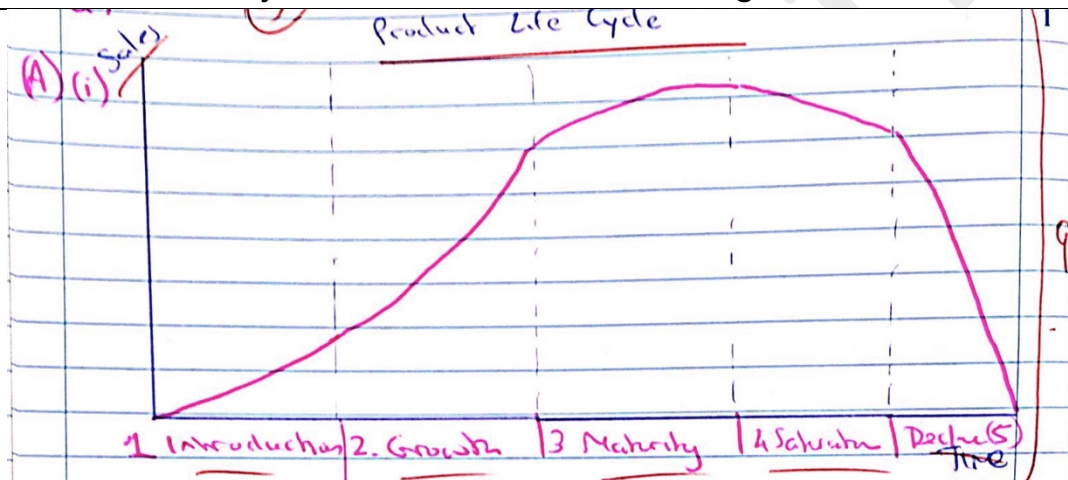 Product Life Cycle
Sales
(A) (i)
1 Introduction 2. Growth 3 Maturity 4 Saturation Decline (5)
Time